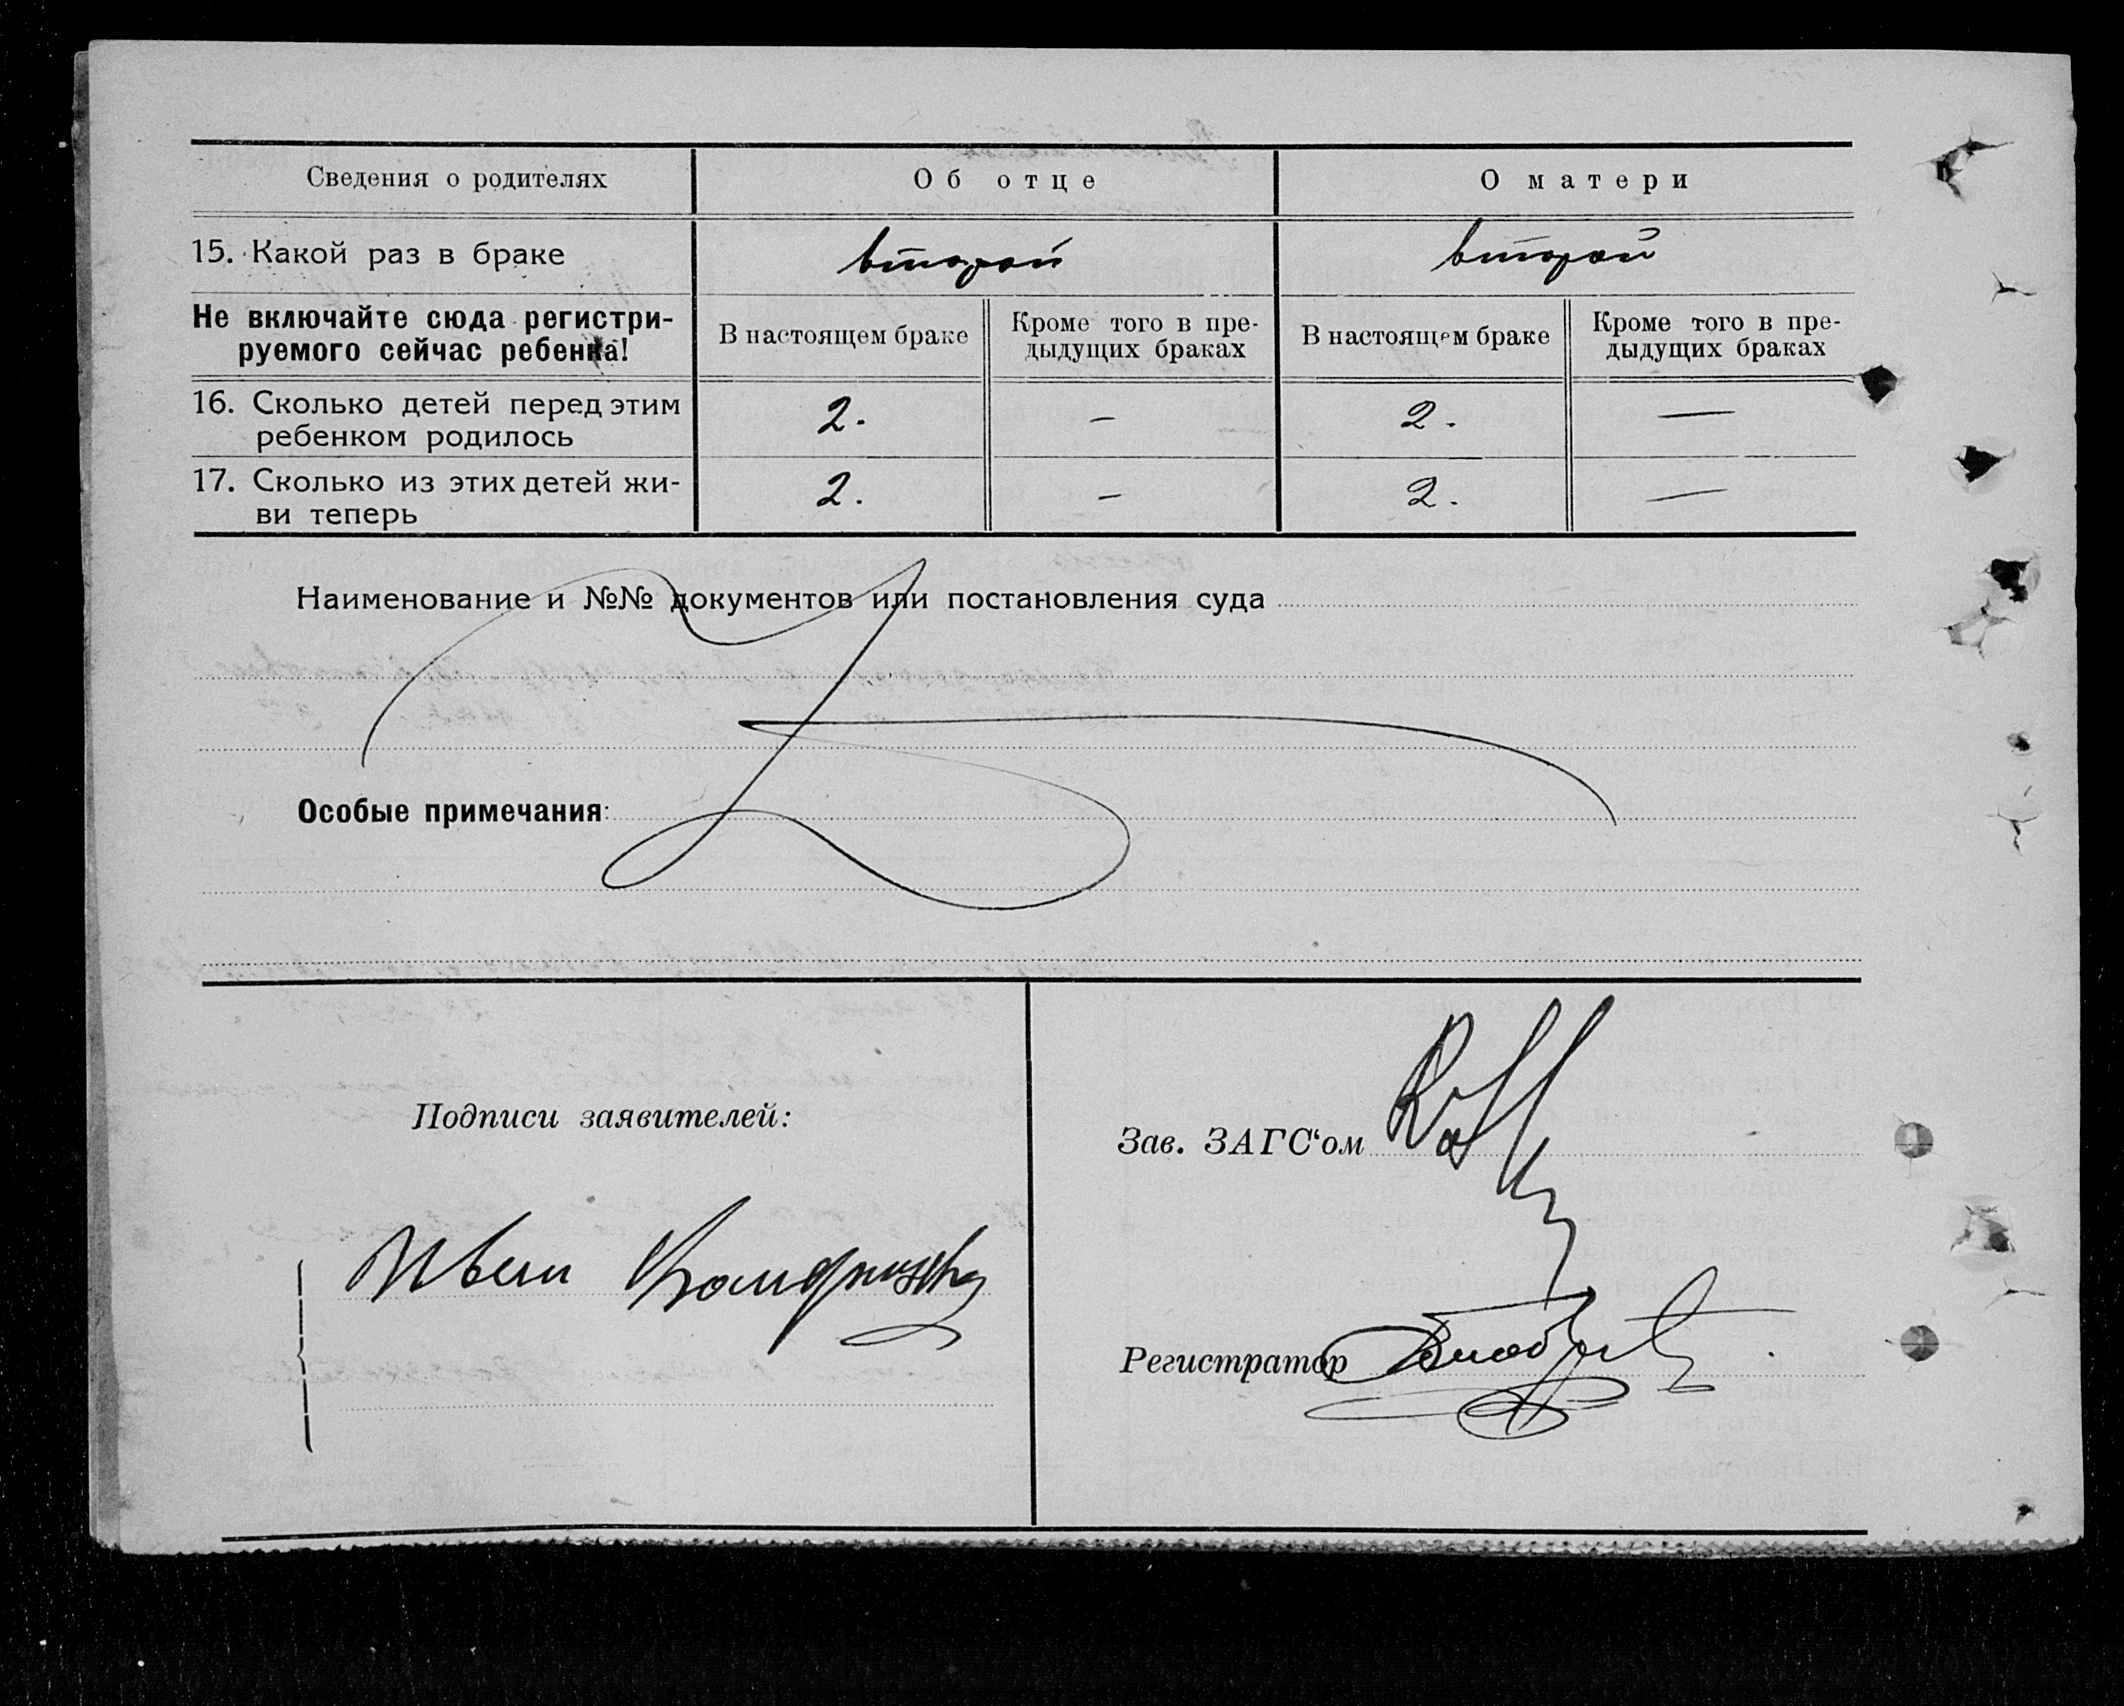 Сведения о родителях Об отце О матери
15. Какой раз в браке второй второй
Не включайте сюда регистри-
руемого сейчас ребенка!
В настоящем браке
Кроме того в пре-
дыдущих браках
В настоящем браке
Кроме того в пре-
дыдущих браках
16. Сколько детей перед этим
ребенком родилось
2. – 2. —
17. Сколько из этих детей жи-
ви теперь
2. – 2. —
Наименование и №№ документов или постановления суда
Особые примечания:
Подписи заявителей:
Зав. ЗАГС‘ом
Регистратор